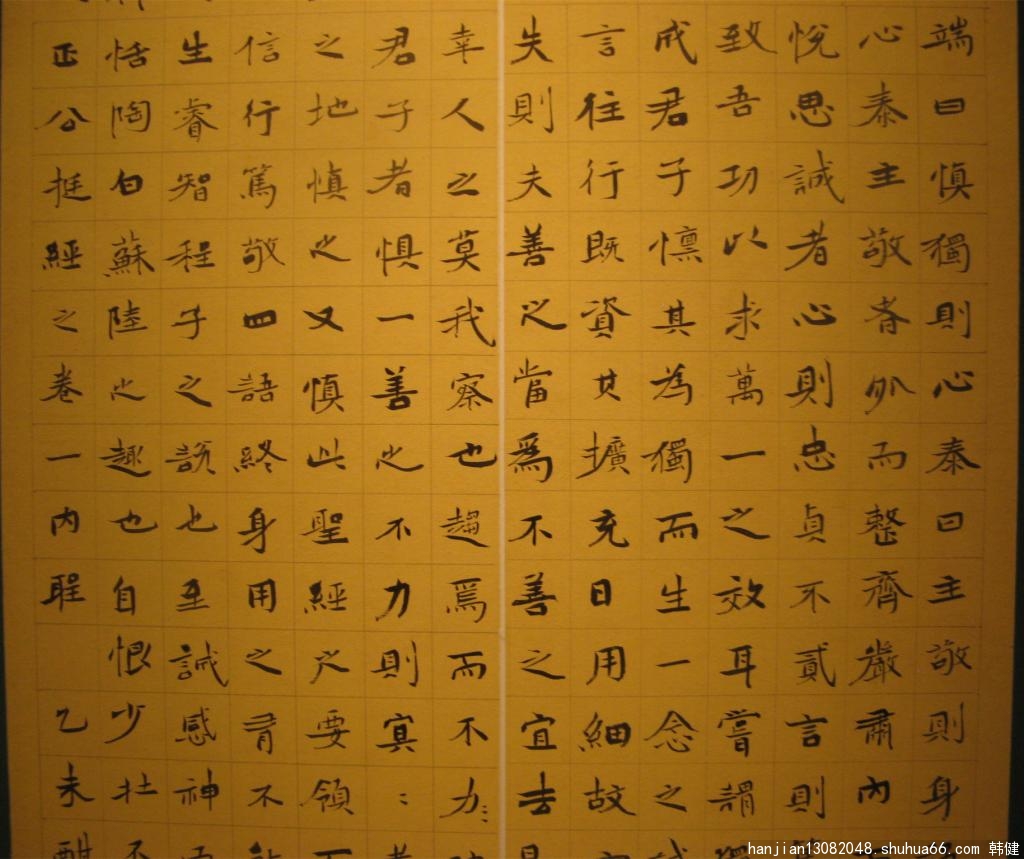 端曰慎獨則心泰曰主敬則身
心泰主敬者外而整齊嚴肅內
悅思誠者心則忠貞不貳言則
致吾功以求萬一之效耳嘗謂
成君子懍其為獨而生一念之
言往行既資其擴充日用細故
失則夫善之當爲不善之宜去
幸人之莫我察也趨爲而不力〻
君子者懼一善之不力則冥〻
之地慎之又慎此聖經之要領
信行篤敬四語終身用之有不
生睿智程子之說也至誠感神
恬陶白蘇陸之趣也自恨少壯
正公挺經之卷一內聖 乙未
hanjian13082048.shuhua66.com 韩健